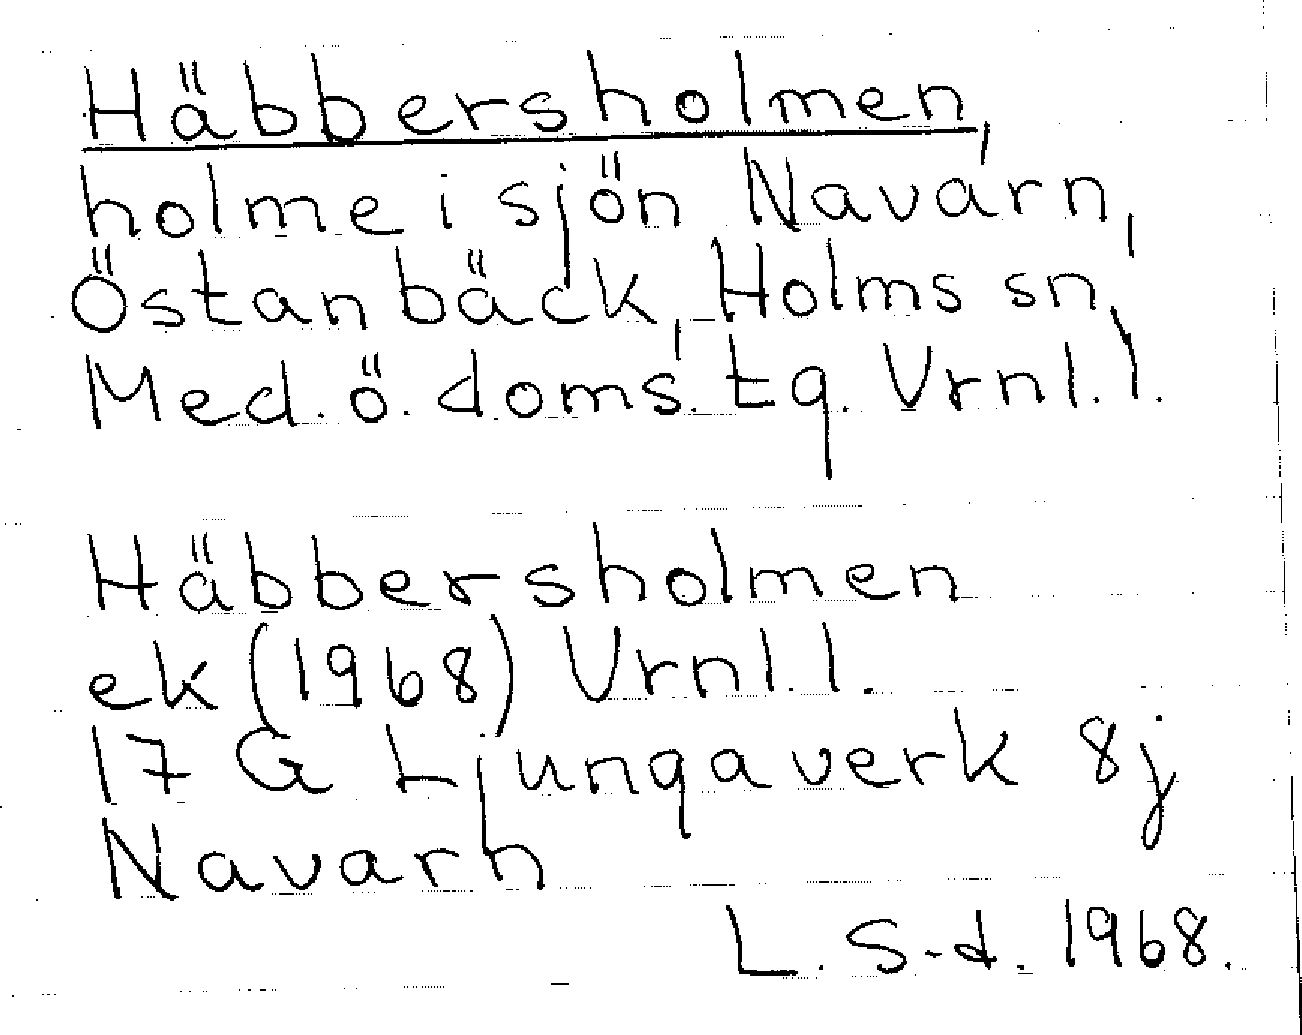 Häbbersholmen,
holme i sjön Navarn,
Östanbäck, Holms sn,
Med. ö. doms. tg. Vrnl. l.
Häbbersholmen
ek (1968) Vrnl. l.
17 G Ljungaverk 8j
Navarn
L. S-d. 1968.